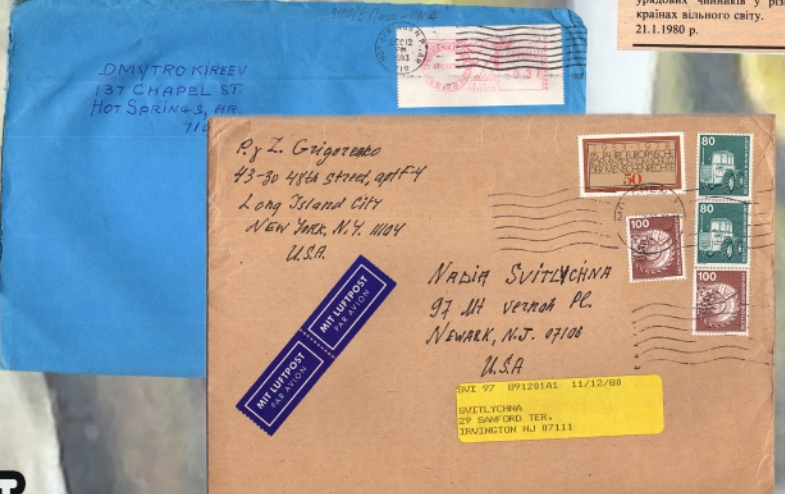 урядових чинників у різ
країнах вільного світу.
21.1.1980 р.
DEC 12
PM
DMYTRO KIREEV
137 CHAPEL ST.
HOT SPRINGS, AR.
P. y Z. Grigorenko
43-30 48th street, apt F-4
Long Island City
NEW York, N.Y. 11104
U.S.A.
25 JAHRE EUROPÄISCHE
DER MENSCHENRECHTE
50
80
80
100
100
MIT LUFTPOST
PAR AVION
MIT LUFTPOST
PAR AVION
NADIA SVITLYCHNA
97 Mt vernon PL.
NEWARK, N.J. 07106
U.S.A
SVI 97 891201A1 11/12/80
SVITLYCHNA
29 SANFORD TER.
IRVINGTON NJ 07111